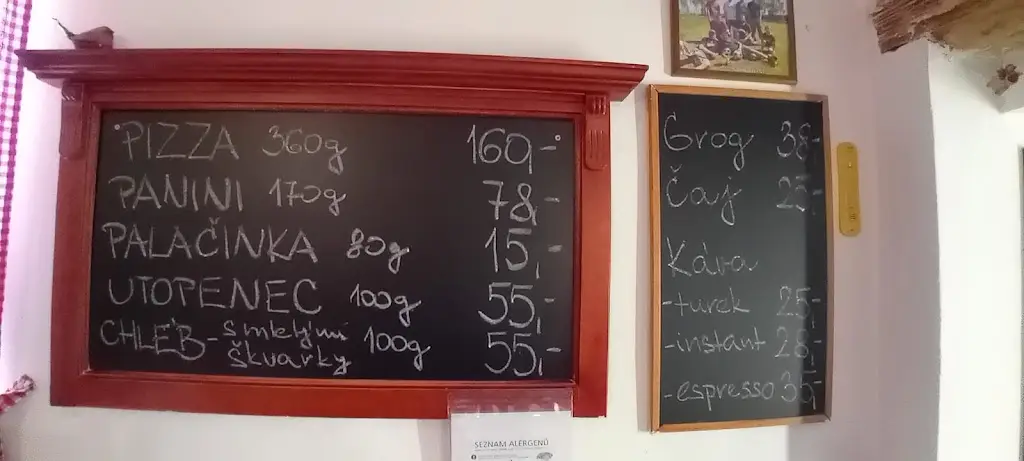 PIZZA 360g 160,-
PANINI 170g 78,-
PALAČINKA 80g 15,-
UTOPENEC 100g 55,-
CHLÉB - s mletými
škvarky 100g 55,-
Grog 38,-
Čaj 25,-
Káva
- turek 25,-
- instant 28,-
- espresso 30,-
SEZNAM ALERGENŮ